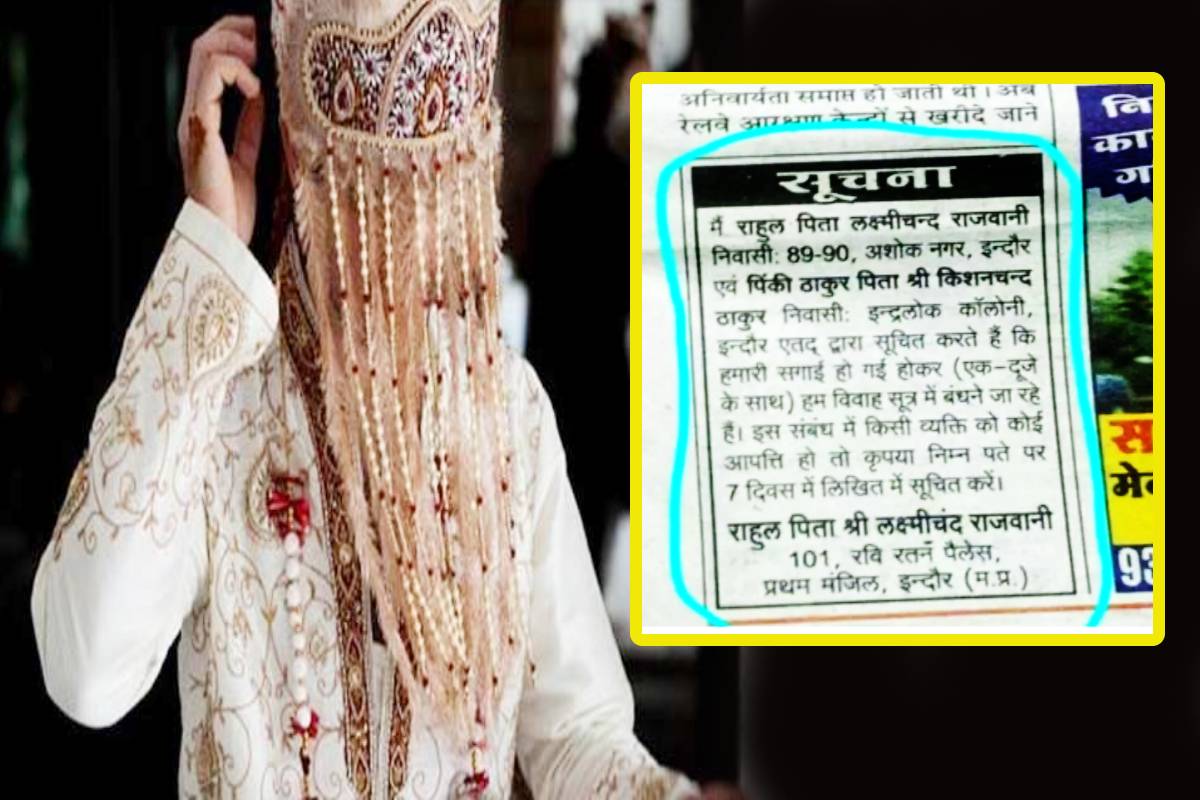 अनिवार्यता समाप्त हो जाती थी। अब
रेलवे आरक्षण केन्द्रों से खरीदे जाने
सूचना
मैं राहुल पिता लक्ष्मीचन्द राजवानी
निवासी: 89-90, अशोक नगर, इन्दौर
एवं पिंकी ठाकुर पिता श्री किशनचन्द
ठाकुर निवासी: इन्द्रलोक कॉलोनी,
इन्दौर एतद् द्वारा सूचित करते हैं कि
हमारी सगाई हो गई होकर (एक-दूजे
के साथ) हम विवाह सूत्र में बंधने जा रहे
हैं। इस संबंध में किसी व्यक्ति को कोई
आपत्ति हो तो कृपया निम्न पते पर
7 दिवस में लिखित में सूचित करें।
राहुल पिता श्री लक्ष्मीचंद राजवानी
101, रवि रतन पैलेस,
प्रथम मंजिल, इन्दौर (म.प्र.)
93